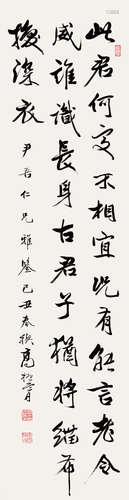 此君何处不相宜况有能言老令
威谁识长身古君子犹将缁布
换染衣
尹吾仁兄雅鉴己丑春振声